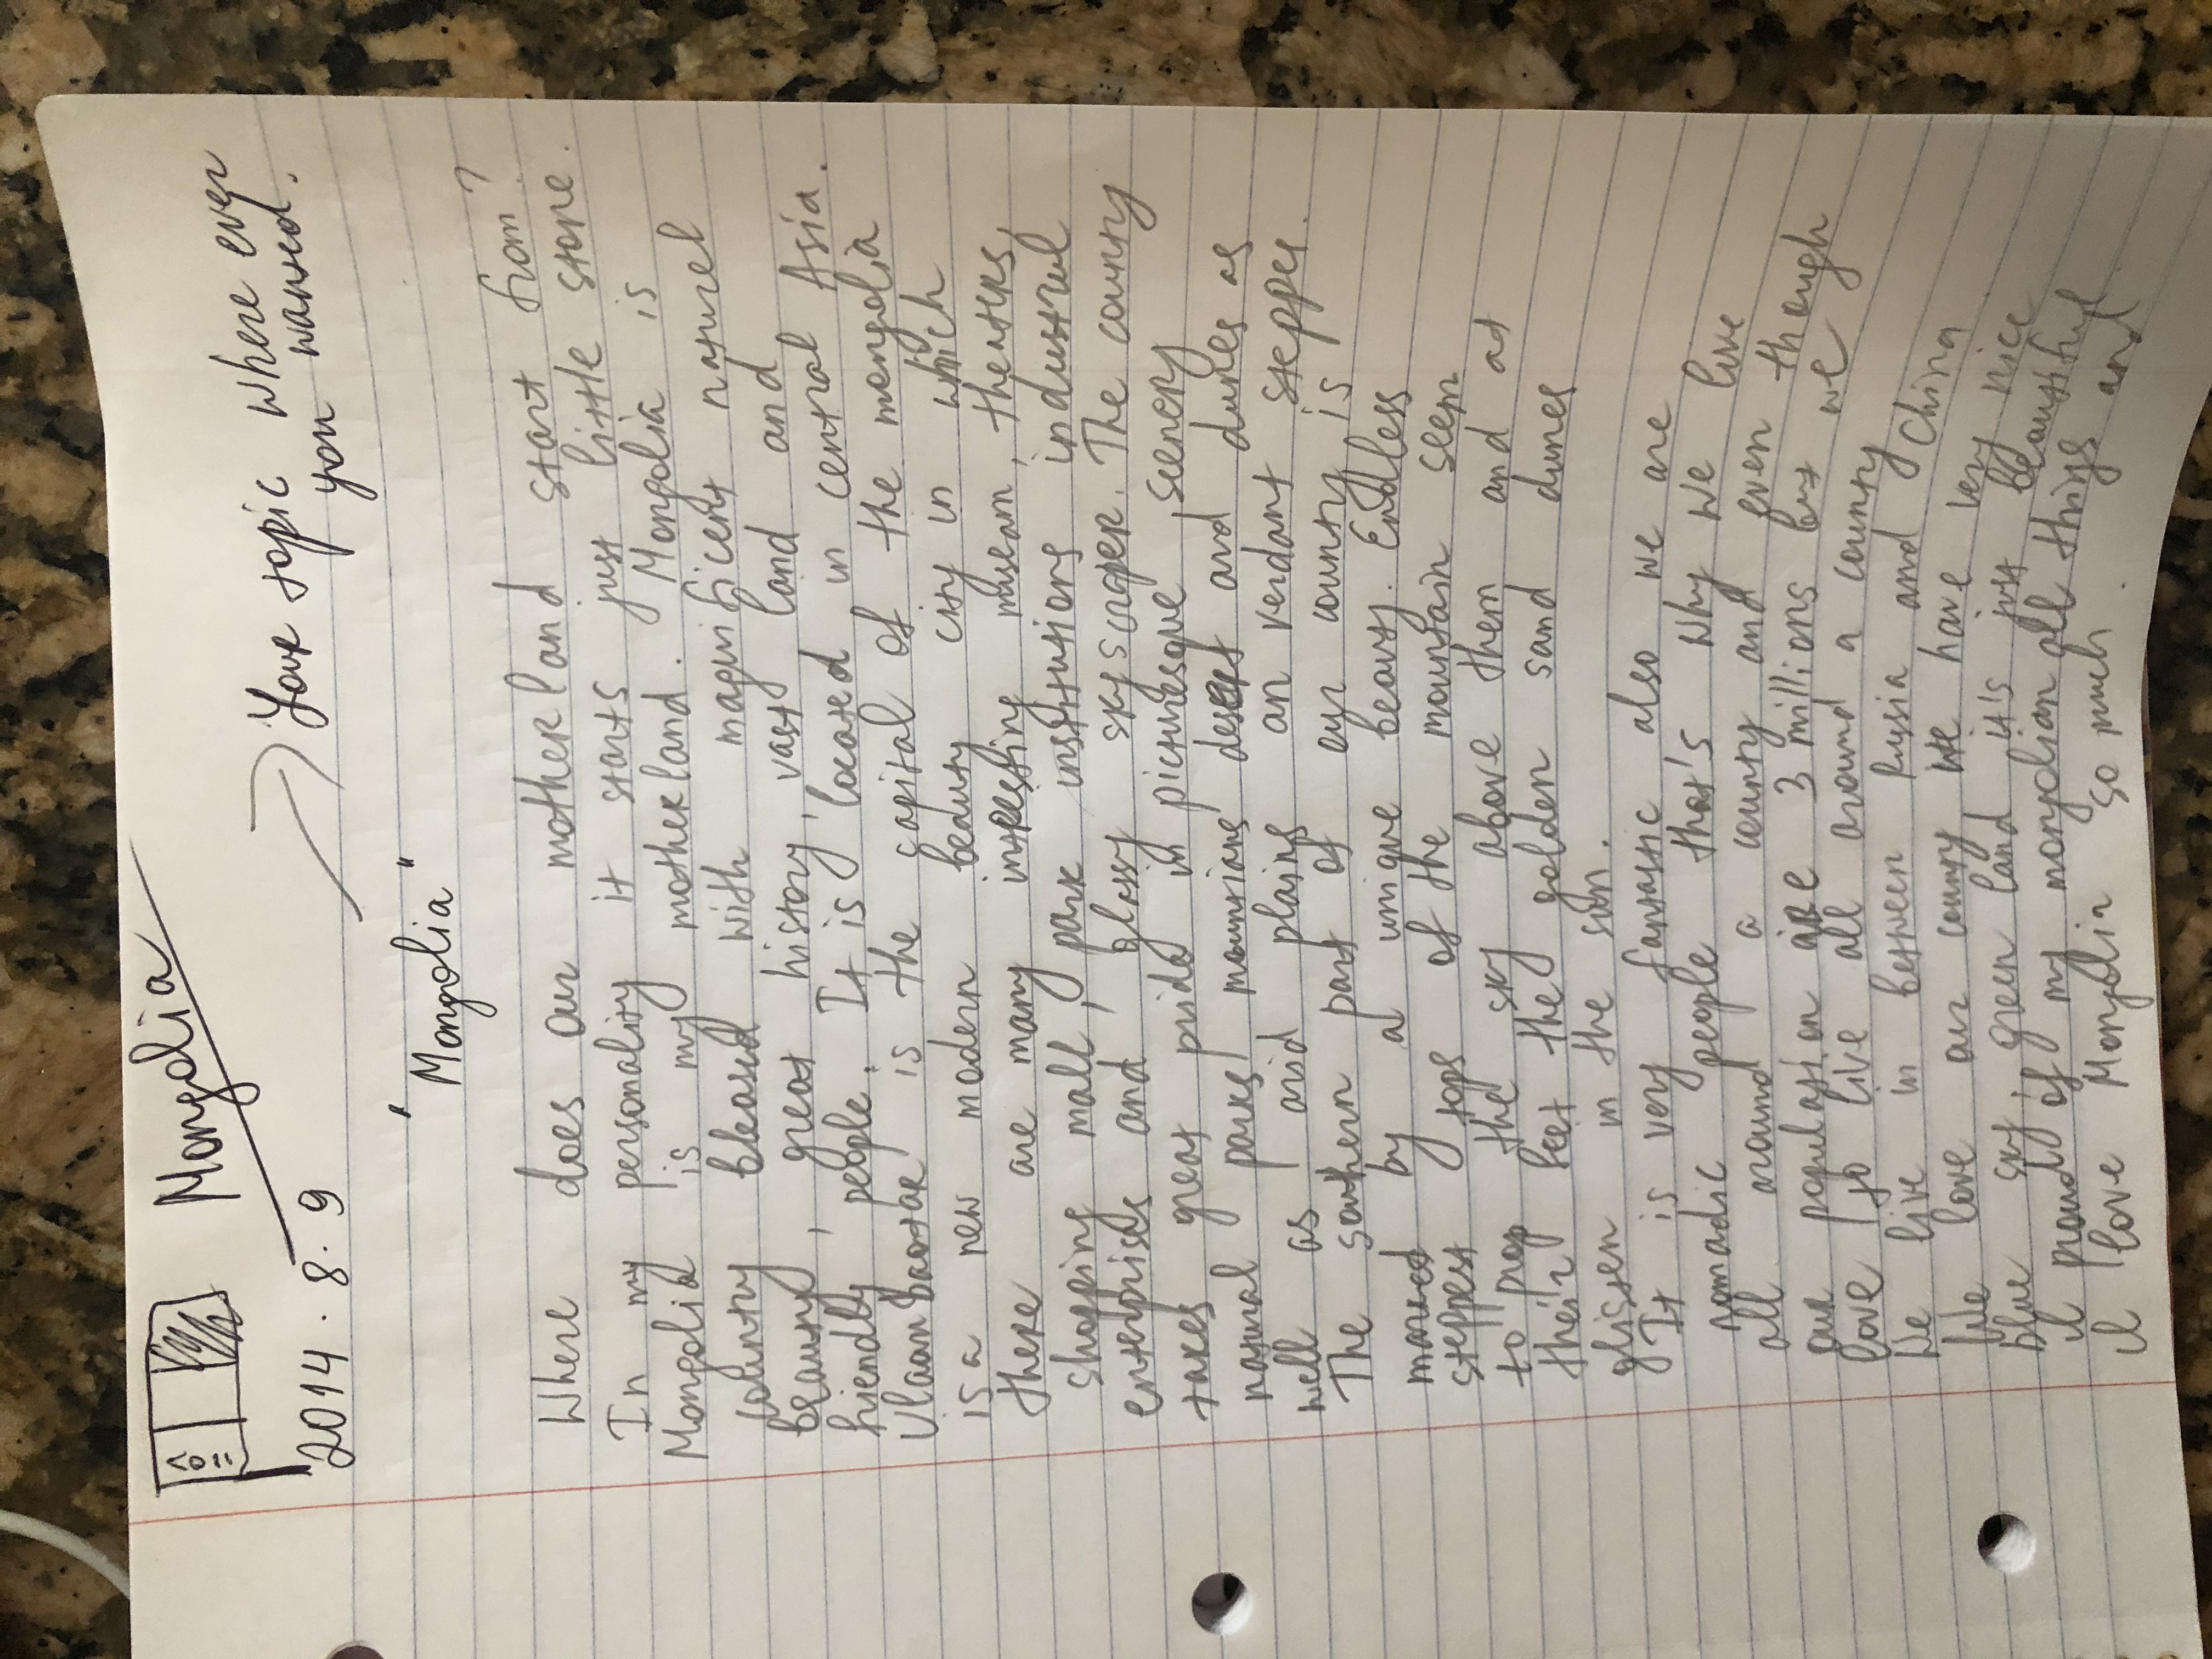 Mongolia
Your topic where ever
you wanted.
2014. 8. 9
"Mongolia"
Where does our motherland start from?
In my personality it starts just little stone.
Mongolia is my motherland. Mongolia is
country bleased with magnificent naturel
beauty, great history, vast land and
friendly people. It is located in central Asia.
Ulaanbaatar is the capital of the mongolia
is a new modern beauty city in which
there are many intresting museam, theaters,
shopping mall, park institutions industrul
enterprises and glassy skyscraper. The country
takes great pride in picturesque scenery
natural parks mountians desert and dunes as
well as arid plains an verdant steppes.
The southern part of our country is
marked by a unique beauty. Endless
steppest tops of the mountain seem
to prop the sky above them and at
their feet the golden sand dunes
glisten in the sun.
It is very fantastic also we are
nomadic people that's why we live
all around a county and even though
our population are 3 millions but we
love to live all around a county
We live in between Russia and China
We love our county we have very nice
blue sky, green land it's just beautiful
I proud of my mongolian all things and
I love Mongolia so much.